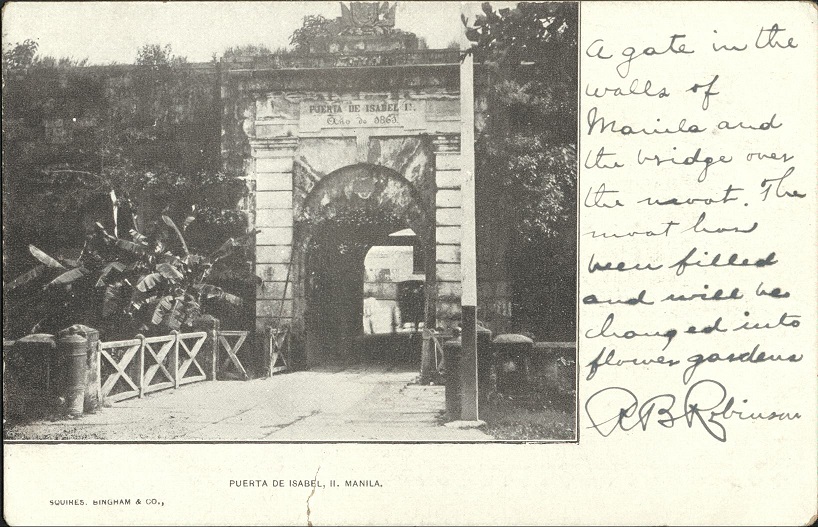 PUERTA DE ISABEL II.
Año de 1861.
A gate in the
walls of
Manila and
the bridge over
the moat. The
moat has
been filled
and will be
changed into
flower gardens
R B Robinson
PUERTA DE ISABEL, II. MANILA.
SQUIRES, BINGHAM & CO.,